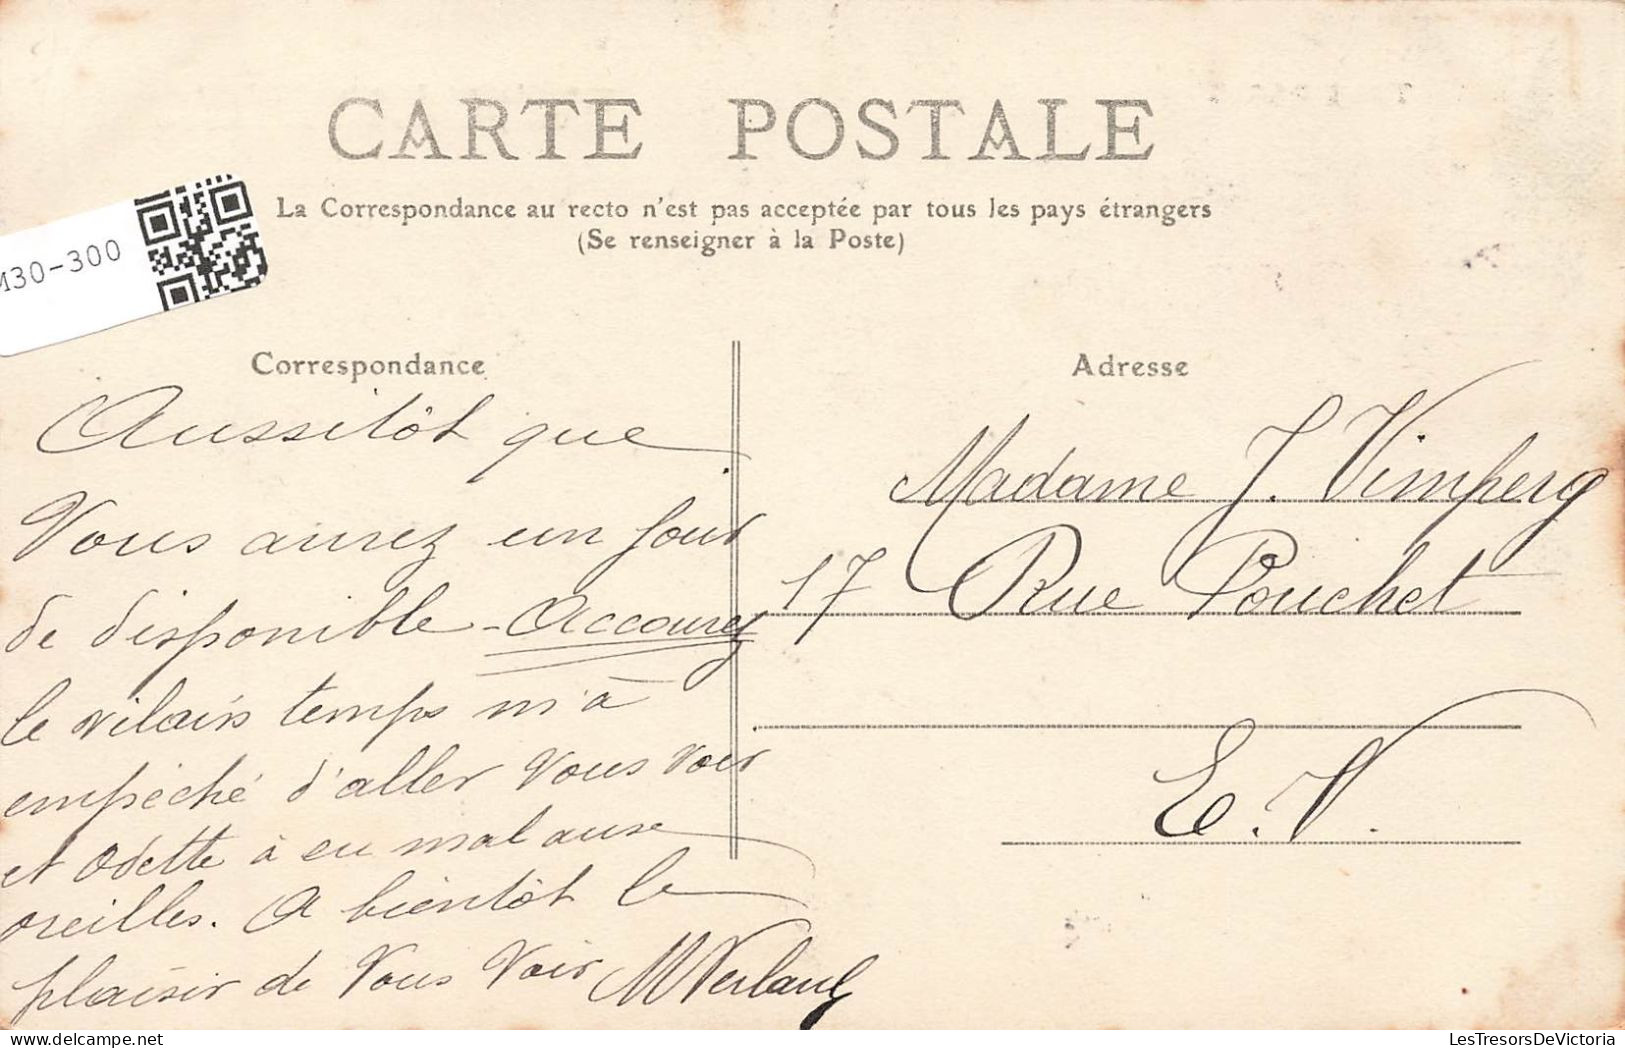 CARTE POSTALE
La Correspondance au recto n'est pas acceptée par tous les pays étrangers
(Se renseigner à la Poste)
M30-300
Correspondance
Aussitôt que
Vous aurez un jour
de disponible - Accourez
le vilain temps m'à
empêché d'aller Vous voir
et Odette à eu mal aux
oreilles. A bientôt le
plaisir de Vous Voir
Adresse
Madame J. Vimpery
17 Rue Pouchet
E. V.
LesTresorsDeVictoria